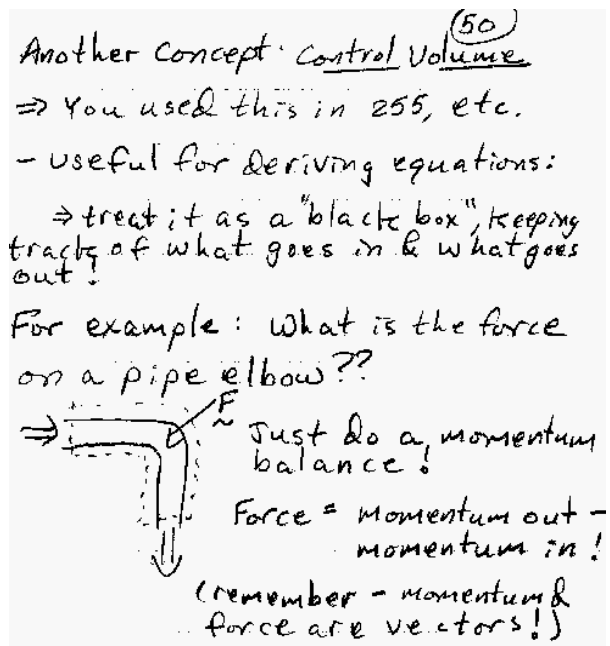 50
Another Concept: Control Volume
⇒ You used this in 255, etc.
- useful for deriving equations:
⇒ treat it as a "black box", keeping
track of what goes in & what goes
out!
For example: What is the force
on a pipe elbow??
F
~
⇒ Just do a momentum
balance!
Force = momentum out -
momentum in!
(remember - momentum &
force are vectors!)